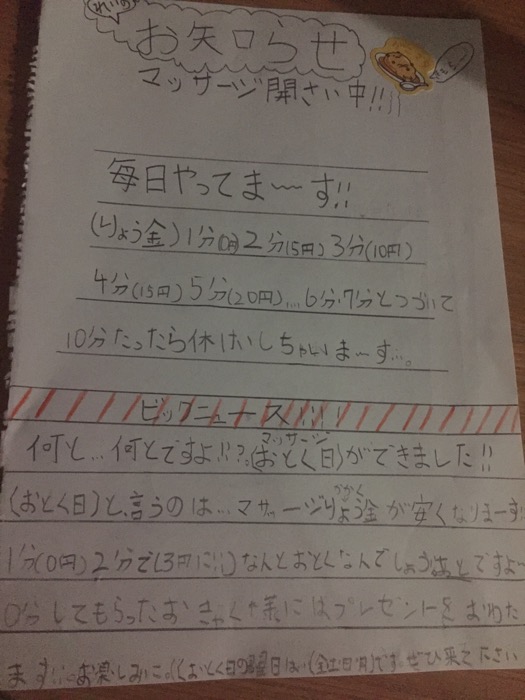 れいの
お知らせ
マッサージ開さい中!!
毎日やってま〜〜す!!
(りょう金)1分(0円)2分(5円)3分(10円)
4分(15円)5分(20円)...6分7分とつづいて
10分たったら休けいしちゃいま〜す...。
ビックニュース!!!!
何と...何とですよ!!?(おとく日)ができました!!
マッサージ
(おとく日)と言うのは...マッサージりょう金が安くなりまーす!!
かかく
1分(0円)2分で(3円に!!)なんとおとくなんでしょう あとですよ〜
0分してもらったおきゃく様にはプレゼントをおわた
ます...。お楽しみに。(おとく日の曜日は、(金土日月)です。ぜひ来て下さい